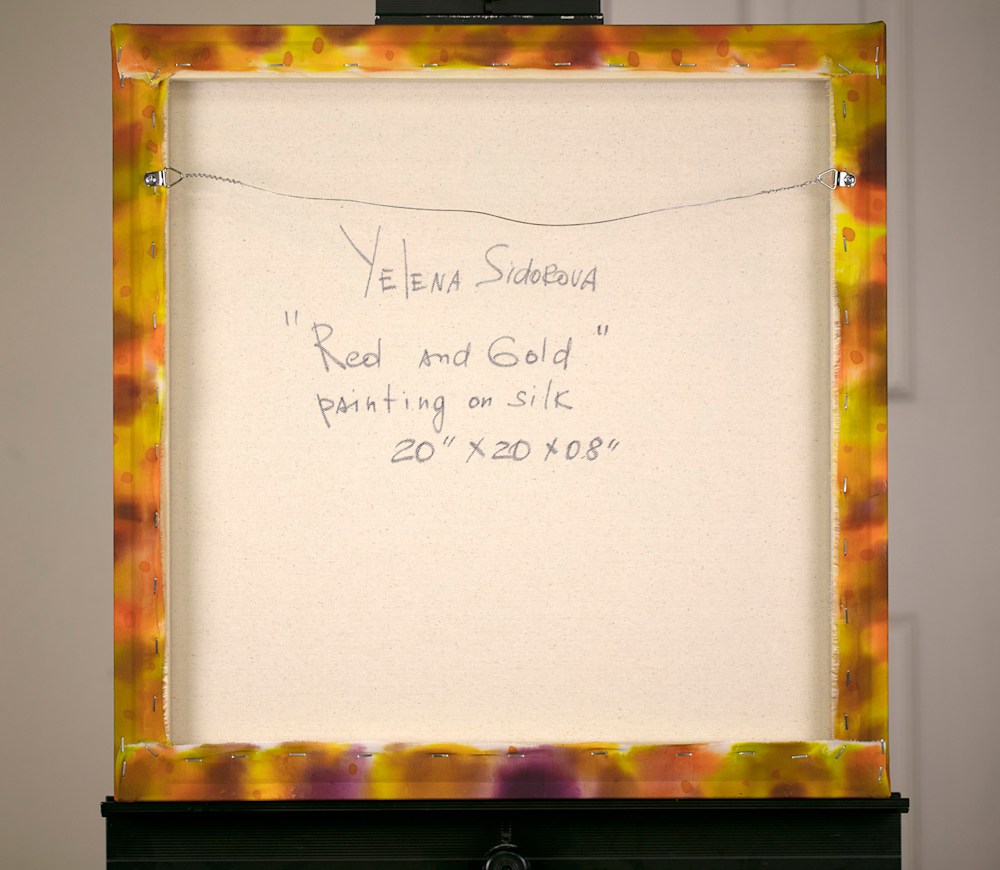 Yelena Sidorova
"Red and Gold"
painting on silk
20" x 20 x 0.8"